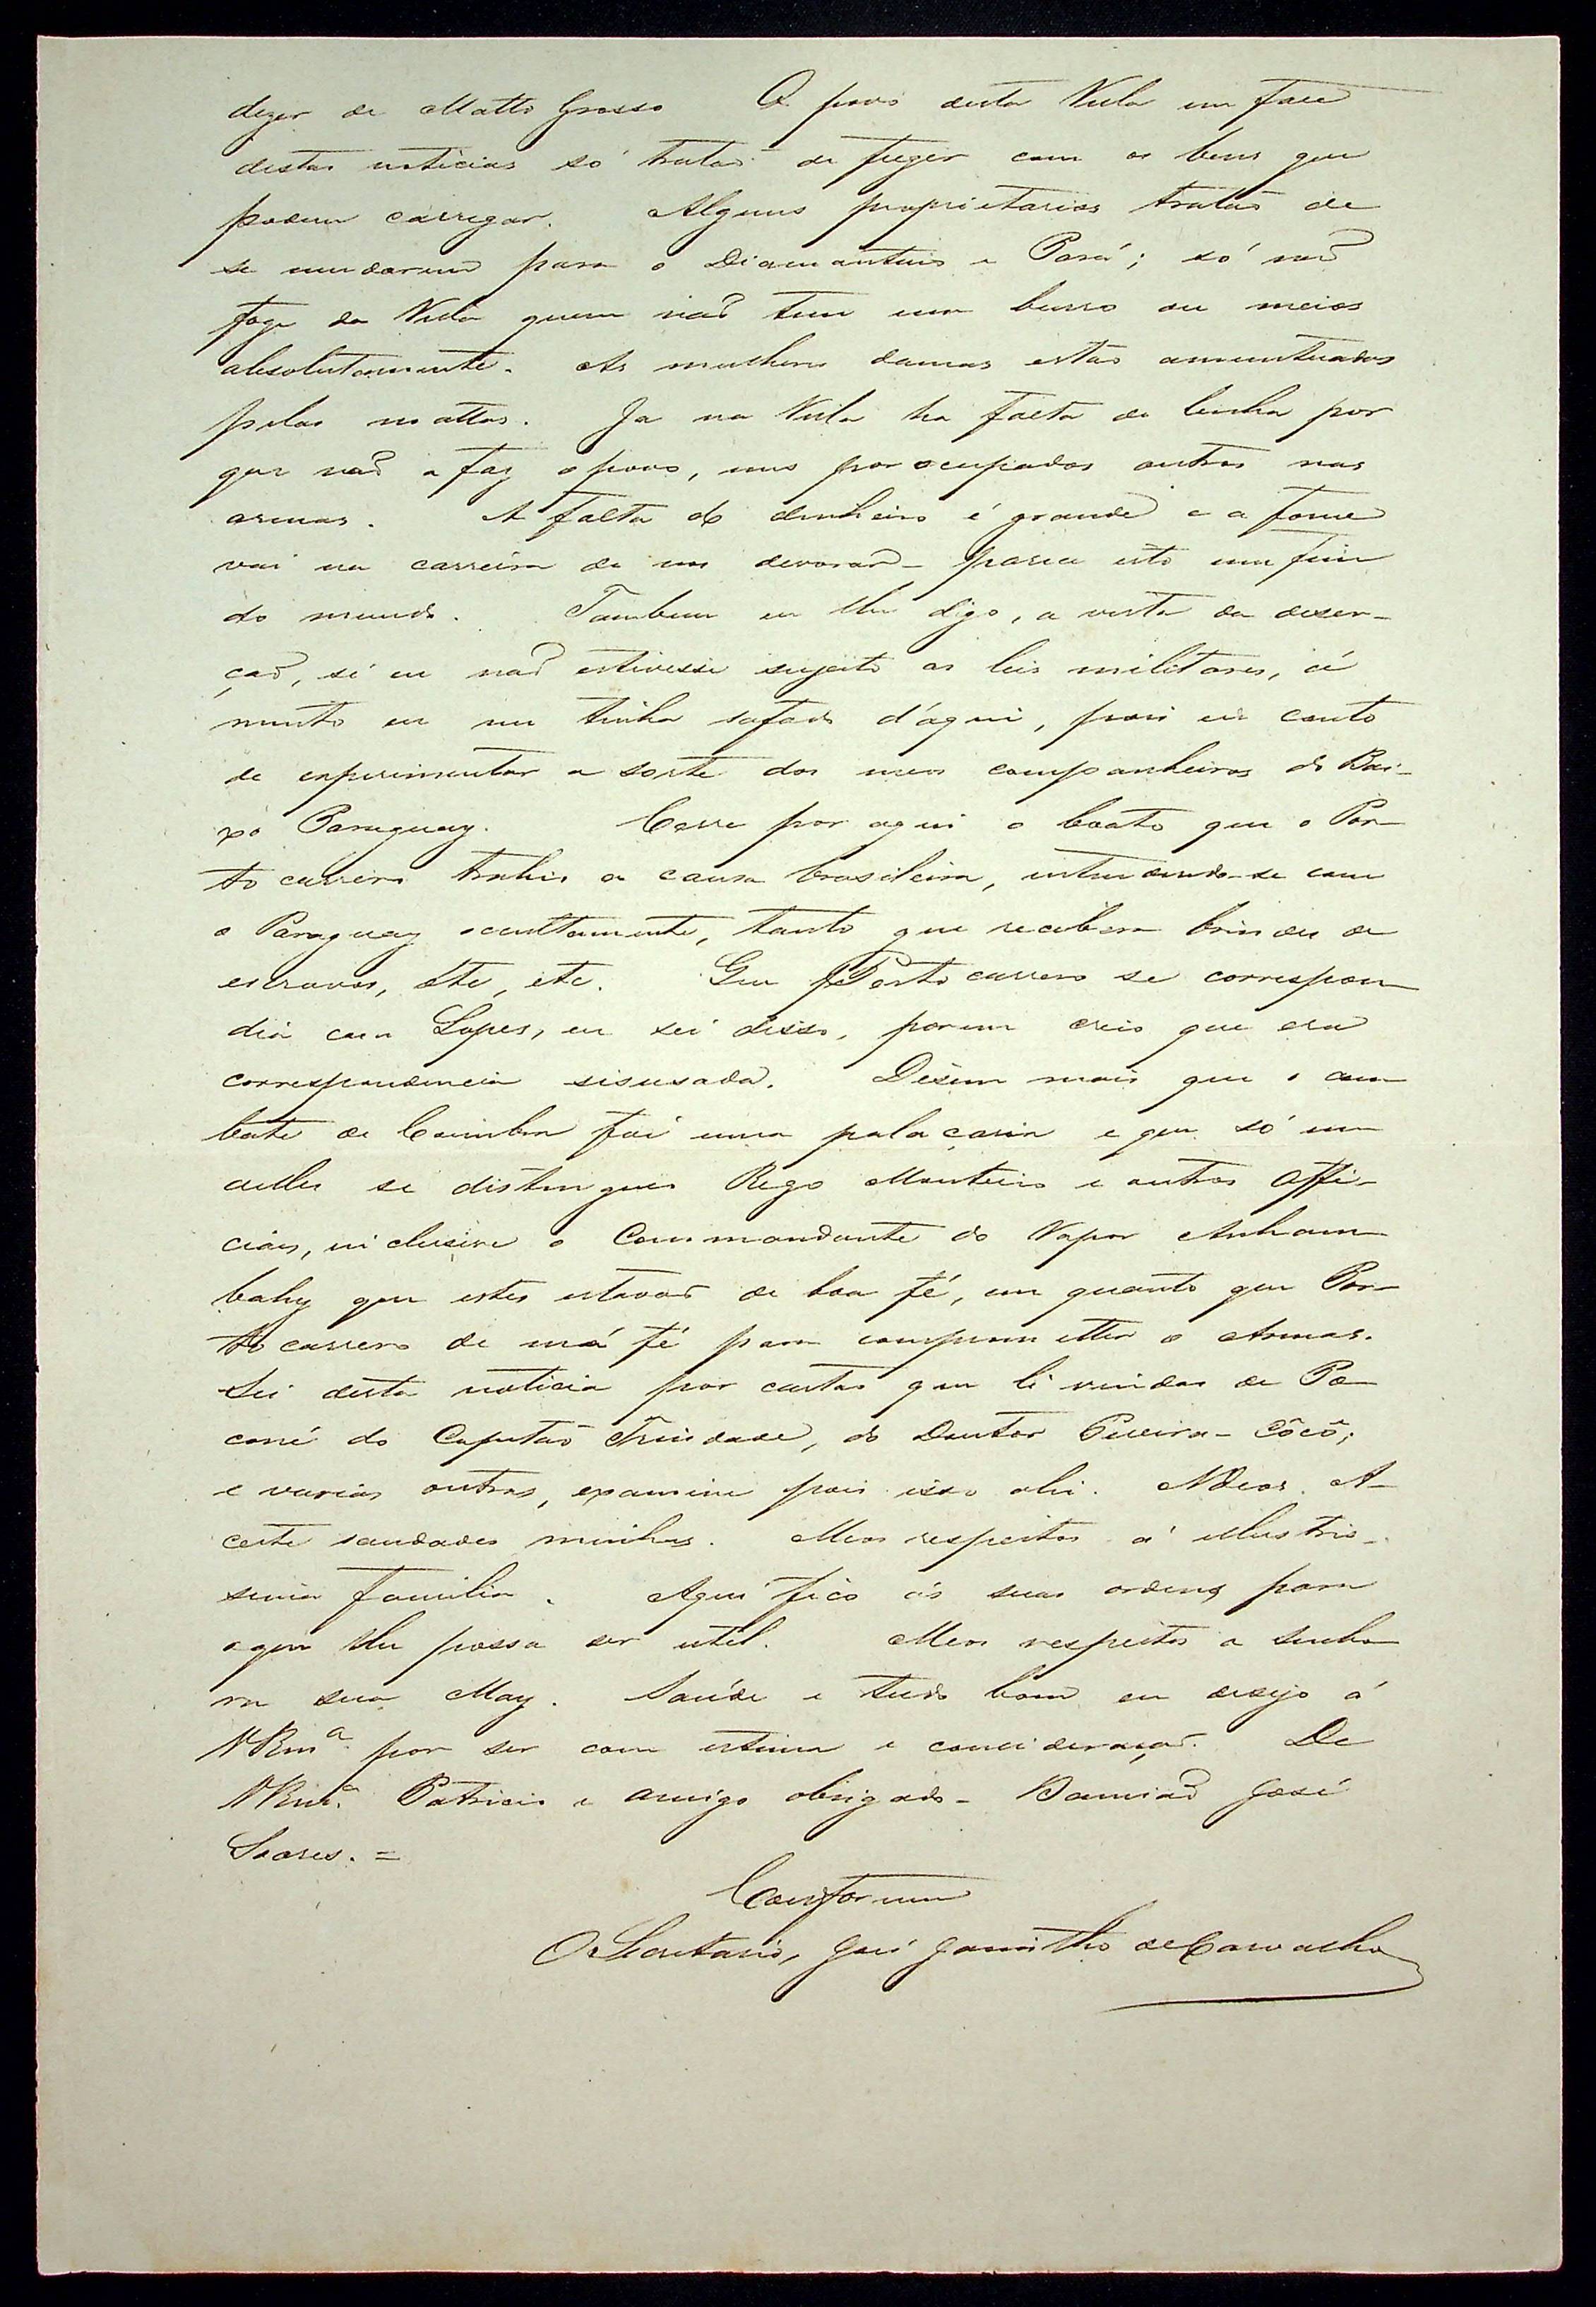 dizer de Matto Grosso O povo desta Villa em face
destas noticias só tratão de fugir com os bens que
podem carregar. Alguns proprietarios tratão de
se mudarem para o Diamantino e Pará; só não
foge da Villa quem não tem um burro ou meios
absolutamente. As mulheres damas estão amuntuadas
pelas mattas. Ja na Villa ha falta de lenha por
que não a faz o povo, uns por ocupados outros nas
armas. A falta do dinheiro é grande e a fome
vai na carreira de nos devorar - parece isto um fim
do mundo. Tambem eu lhe digo, a vista da deser-
ção, si eu não estivesse sujeito as leis militares, á
muito eu me tinha safado d'aqui, pois eu conto
de experimentar a sorte dos meus companheiros do Bai-
xo Paraguay. Corre por aqui o boato que o Por-
to carrero trahio a causa brasileira, entendendo-se com
o Paraguay occultamente, tanto que recebera brindes de
escravos, etc, etc. Que Porto carrero se correspon-
dia com Lopes, eu sei disso, porem creio que era
correspondencia sisusada. Disem mais que o com-
bate de Coimbra foi uma palaçaria e que só em
delles se distinguio Rego Monteiro e outros Offi-
ciaes, inclusive o Commandante do Vapor Anham-
bahy que estes estavão de boa fé, em quanto que Por-
to carrero de má fé para comprometter o Armas.
Sei desta noticia por cartas que li vindas de Po-
coné do Capitão Trindade, do Doutor Pereira - Côcô;
e varias outras, examine pois isso ahi. ADeos. A-
ceite saudades minhas. Meos respeitos á illustris-
sima familia. Aqui fico ás suas ordens para
o que lhe possa ser util. Meos respeitos a Senho-
ra sua May. Saúde e tudo bom eu desejo á
VRmª. por ser com estima e concideração. De
VRmª. Patricio e amigo obrigado - Damião José
Soares. =
Conforme
O Secretario, José Jacintho de Carvalho